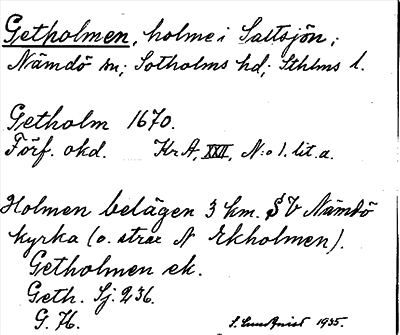 Getholmen, holme i Saltsjön;
Nämdö sn; Sotholms hd; Sthlms l.
Getholm 1670.
Förf. okd. KrA, XXII, N:o 1. lit. a.
Holmen belägen 3 km. SV Nämdö
kyrka (o. strax N Ekholmen).
Getholmen ek.
Geth. Sj. 236.
G. 76.
S. Lundqvist 1935.